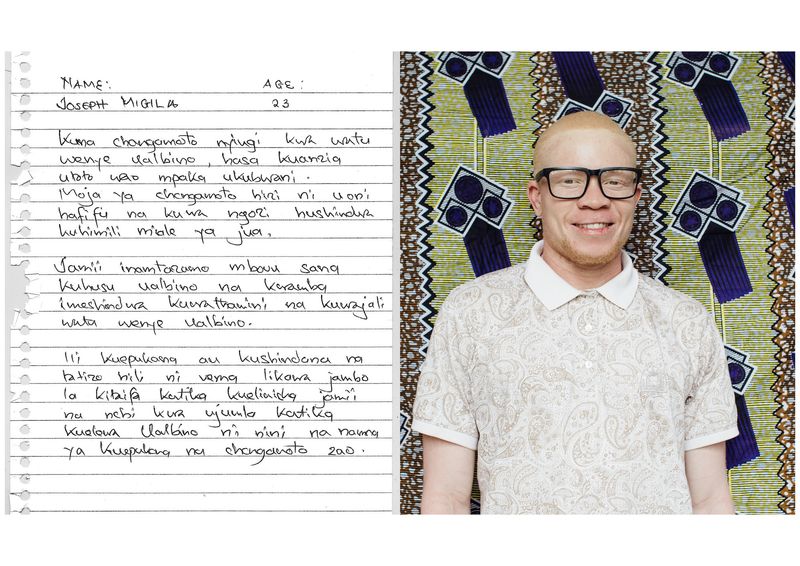 NAME: AGE:
JOSEPH MIGILA 23
Kuna changamoto nyingi kwa watu
wenye Ualbino, hasa kuanzia
utoto wao mpaka ukubwani.
Moja ya changamoto hizi ni uoni
hafifu na kuwa ngozi hushindwa
kuhimili miale ya jua,
Jamii inamtazamo mbovu sana
kuhusu Ualbino na kwamba
imeshindwa kuwathamini na kuwajali
watu wenye Ualbino.
Ili kuepukana au kushindana na
tatizo hili ni vema likawa jambo
la kitaifa katika kuelimisha jamii
na nchi kwa ujumla katika
kuelewa Ualbino ni nini na namna
ya kuepukana na changamoto zao.